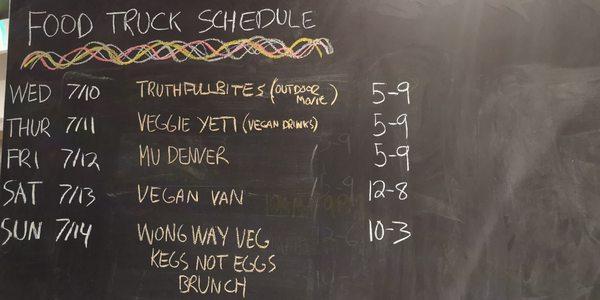 FOOD TRUCK SCHEDULE
WED 7/10 TRUTHFULLBITES (OUTDOOR MOVIE) 5-9
THUR 7/11 VEGGIE YETI (VEGAN DRINKS) 5-9
FRI 7/12 MU DENVER 5-9
SAT 7/13 VEGAN VAN 12-8
SUN 7/14 WONG WAY VEG 10-3
KEGS NOT EGGS
BRUNCH